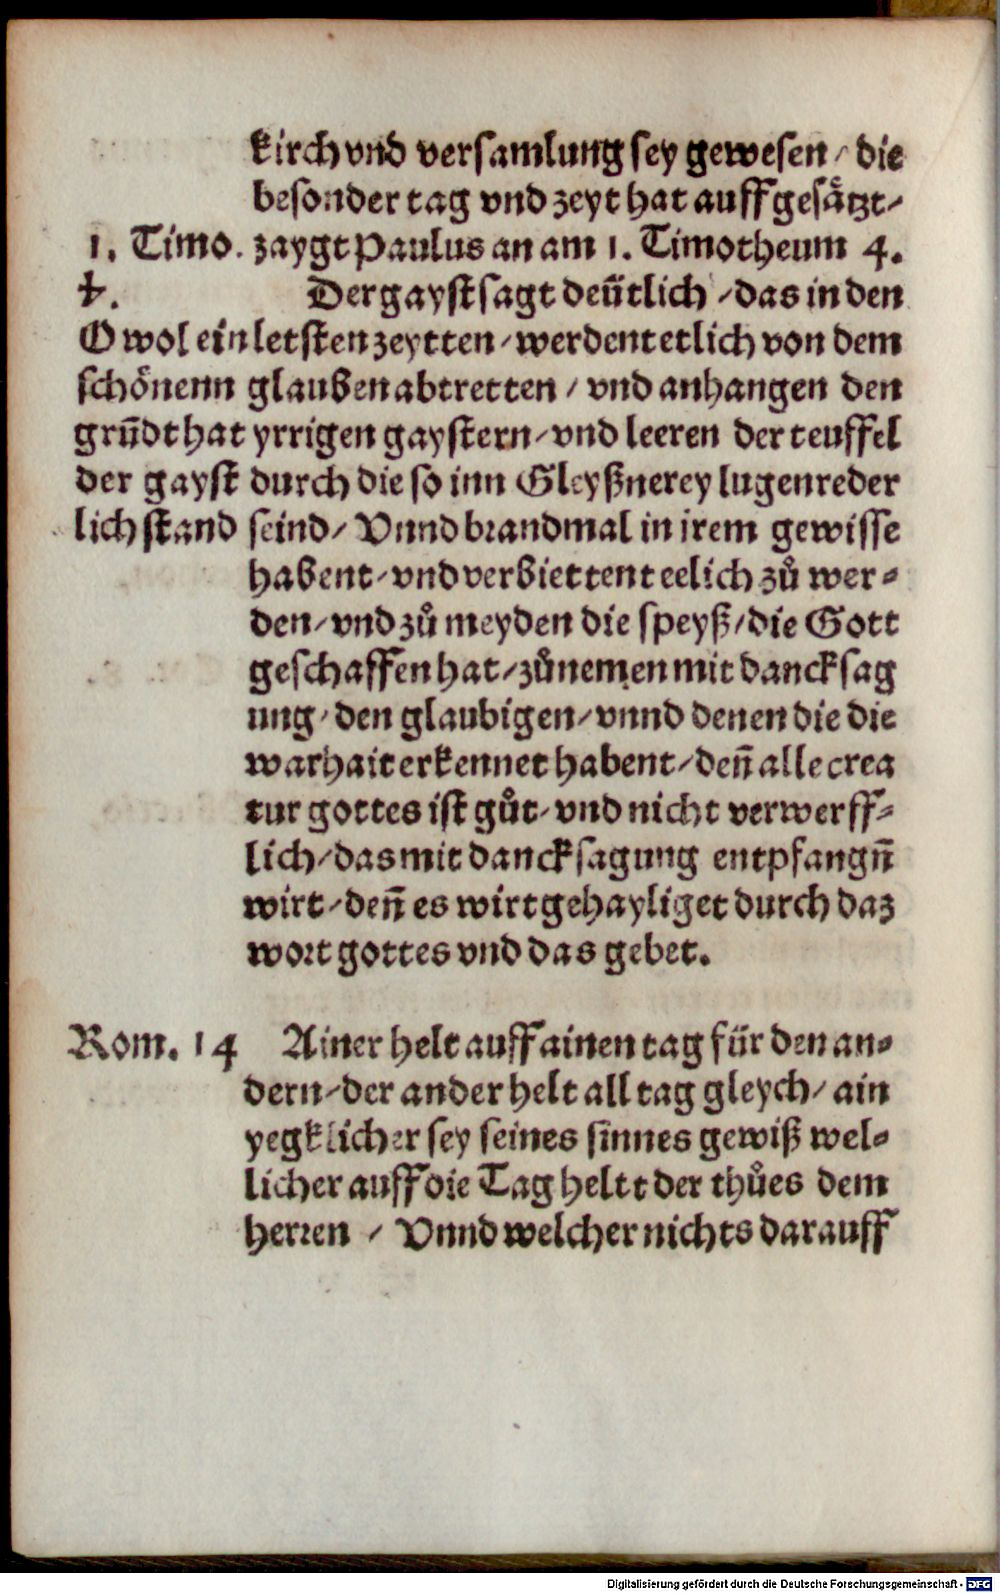 kirch vnd versamlung sey gewesen / die
besonder tag vnd zeyt hat auffgesåtzt /
1. Timo. zaygt Paulus an am 1. Timotheum 4.
Der gayst sagt deütlich / das in den
O wol ein letsten zeytten / werdent etlich von dem
schönenn glauben abtretten / vnd anhangen den
grũdt hat yrrigen gaystern / vnd leeren der teuffel
der gayst durch die so inn Gleyßnerey lugenreder
lich stand seind / Vnnd brandmal in irem gewisse
habent / vnd verbiettent eelich zů wer⸗
den / vnd zů meyden die speyß / die Gott
geschaffen hat / zůnemen mit dancksag
ung / den glaubigen / vnnd denen die die
warhait erkennet habent / den̄ alle crea
tur gottes ist gůt / vnd nicht verwerff⸗
lich / das mit dancksagung entpfangn̄
wirt / den̄ es wirt gehayliget durch daz
wort gottes vnd das gebet.
Rom. 14 Ainer helt auff ainen tag für den an⸗
dern / der ander helt all tag gleych / ain
yegklicher sey seines sinnes gewiß wel⸗
licher auff die Tag heltt der thůes dem
herren / Vnnd welcher nichts darauff
Digitalisierung gefördert durch die Deutsche Forschungsgemeinschaft - DFG